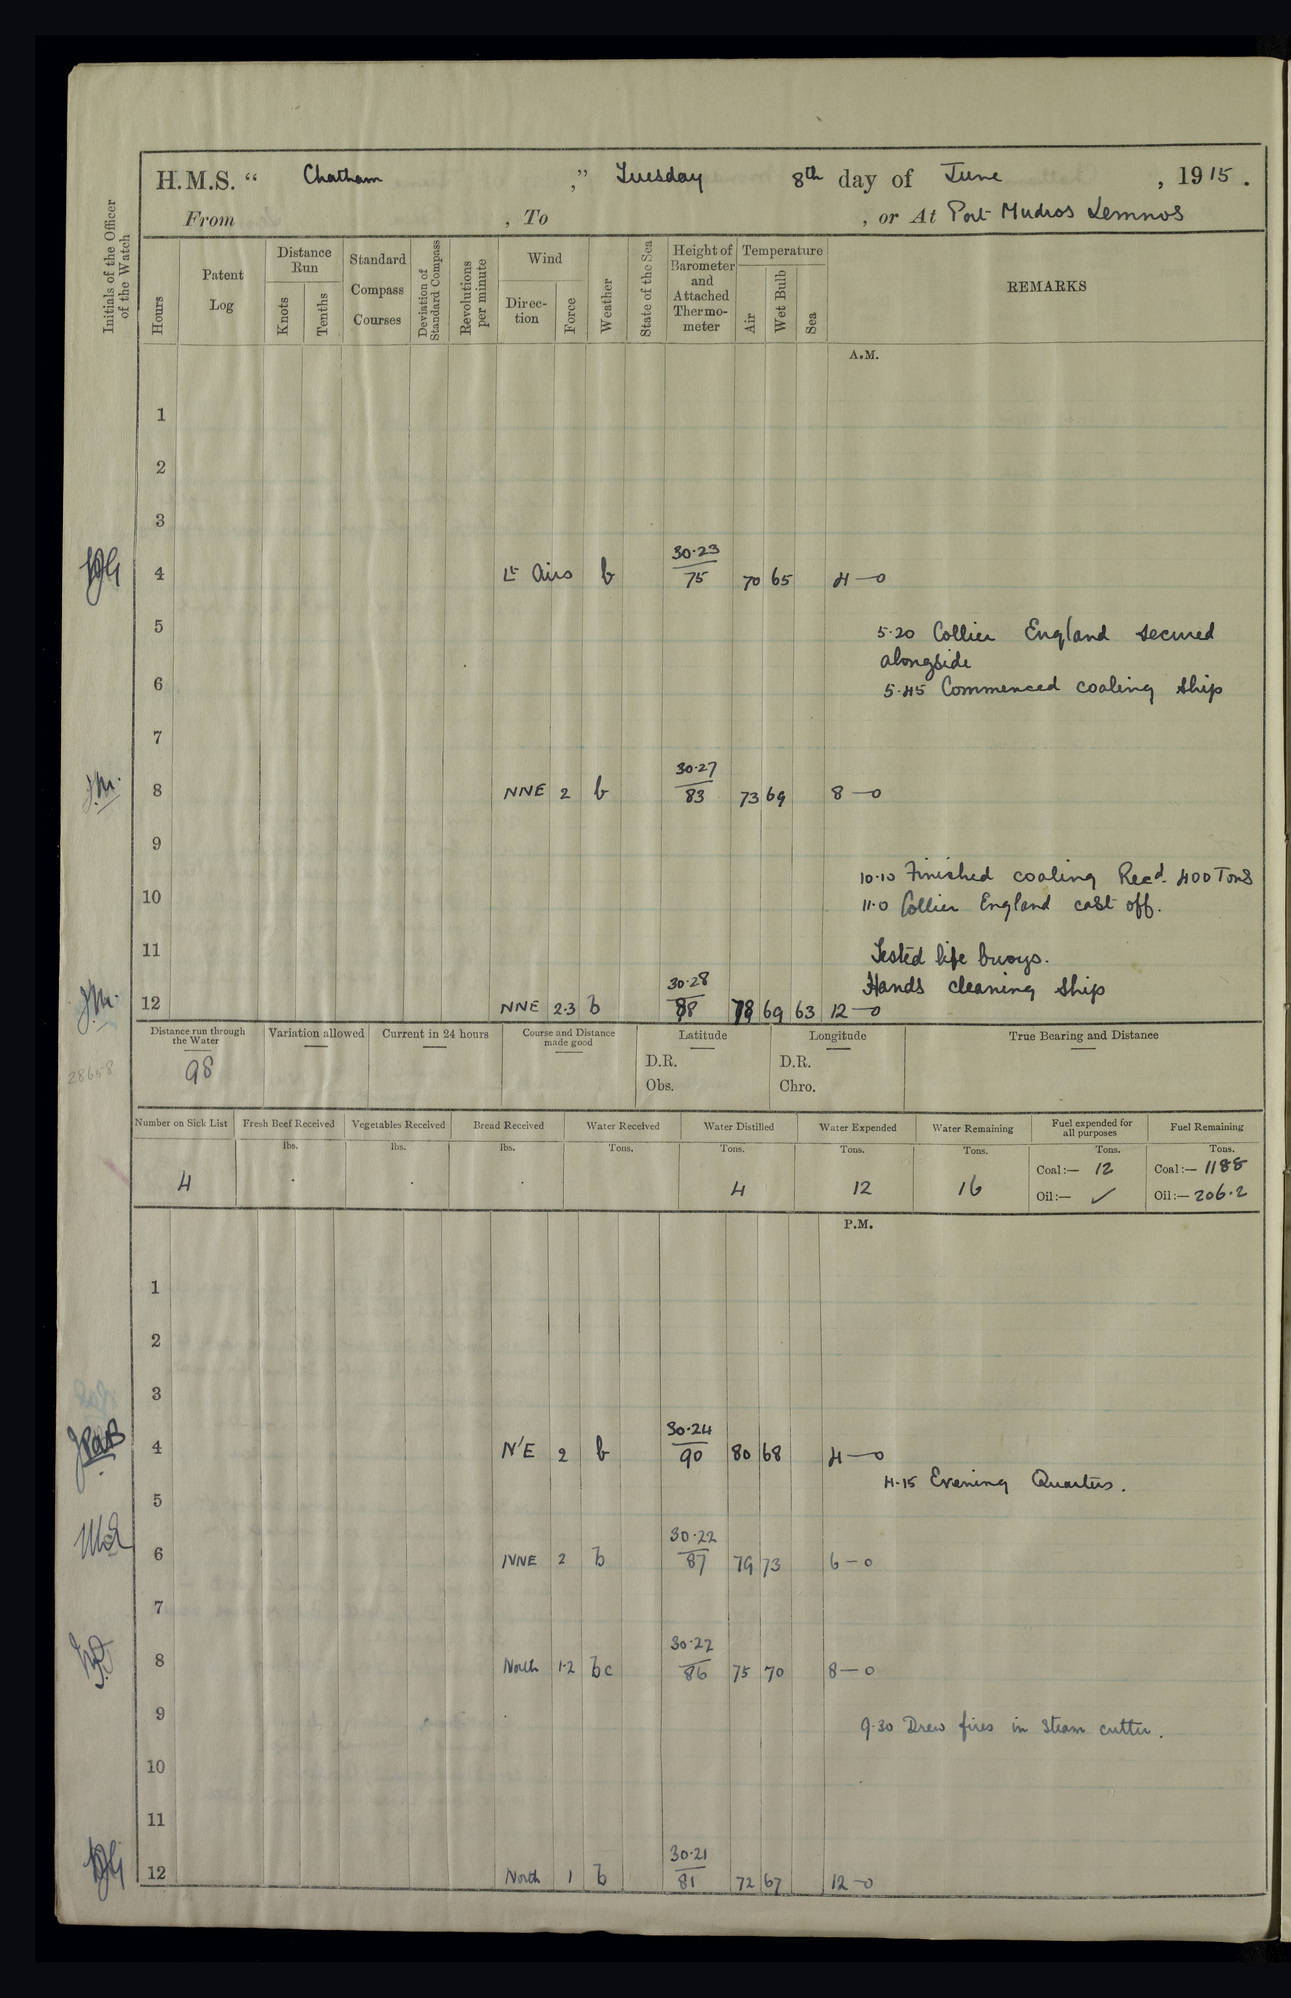 H.M.S. “ Chatham ,” Tuesday 8th day of June , 1915 .
From , To , or At Port Mudros Lemnos
Initials of the Officer of the Watch
Hours
Patent Log
Distance Run
Knots
Tenths
Standard Compass Courses
Deviation of Standard Compass
Revolutions per minute
Wind
Direc-tion
Force
Weather
State of the Sea
Height of Barometer and Attached Thermo-meter
Temperature
Air
Wet Bulb
Sea
REMARKS
A.M.
1
2
3
30·23
4 Lt Airs b 75 70 65 4—0
5 5·20 Collier England secured
alongside
6 5·45 Commenced coaling ship
7
30·27
J.M. 8 NNE 2 b 83 73 69 8—0
9
10·10 Finished coaling Recd. 400 Tons
10 11·0 Collier England cast off.
11 Tested life buoys.
30·28 Hands cleaning ship
J.M. 12 NNE 2·3 b 88 78 69 63 12—0
Distance run through the Water
Variation allowed
Current in 24 hours
Course and Distance made good
Latitude
Longitude
True Bearing and Distance
28658
98
D.R. D.R.
Obs. Chro.
Number on Sick List
Fresh Beef Received
Vegetables Received
Bread Received
Water Received
Water Distilled
Water Expended
Water Remaining
Fuel expended for all purposes
Fuel Remaining
lbs. lbs. lbs. Tons. Tons. Tons. Tons. Tons. Tons.
Coal:— 12 Coal:— 1188
4 4 12 16
Oil:— ✓ Oil:— 206·2
P.M.
1
2
3
30·24
4 N'E 2 b 90 80 68 4—0
4·15 Evening Quarters.
5
30·22
6 NNE 2 b 87 79 73 6—0
7
30·22
8 North 1·2 bc 86 75 70 8—0
9 9·30 Drew fires in steam cutter.
10
11
30·21
12 North 1 b 81 72 67 12—0